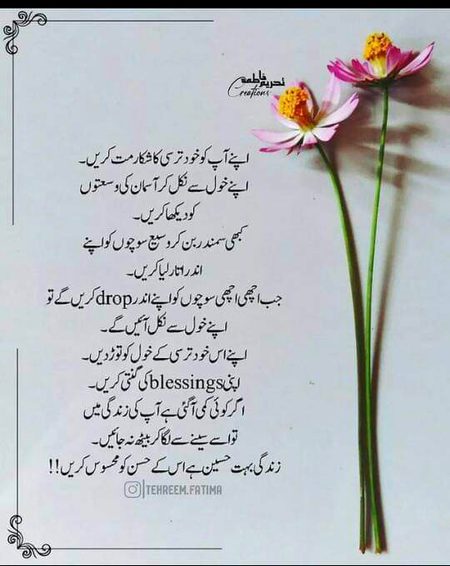 تحریم فاطمہ
Creations
اپنے آپ کو خود ترسی کا شکار مت کریں۔
اپنے خول سے نکل کر آسمان کی وسعتوں
کو دیکھا کریں۔
کبھی سمندر بن کر وسیع سوچوں کو اپنے
اندر اتار لیا کریں۔
جب اچھی اچھی سوچوں کو اپنے اندر drop کریں گے تو
اپنے خول سے نکل آئیں گے۔
اپنے اس خود ترسی کے خول کو توڑ دیں۔
اپنی blessings کی گنتی کریں۔
اگر کوئی کمی آگئی ہے آپ کی زندگی میں
تو اسے سینے سے لگا کر بیٹھ نہ جائیں۔
زندگی بہت حسین ہے اس کے حسن کو محسوس کریں!!
TEHREEM.FATIMA